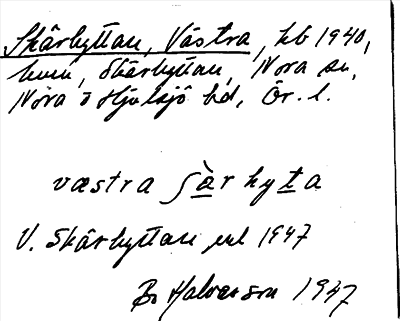 Skärhyttan, Västra, hb 1940,
hmn, Skärhyttan, Nora sn,
Nora o Hjulsjö hd, Ör. l.
væstra ʃàr hyta
V. Skärhyttan enl 1947
Bo Halvarson 1947